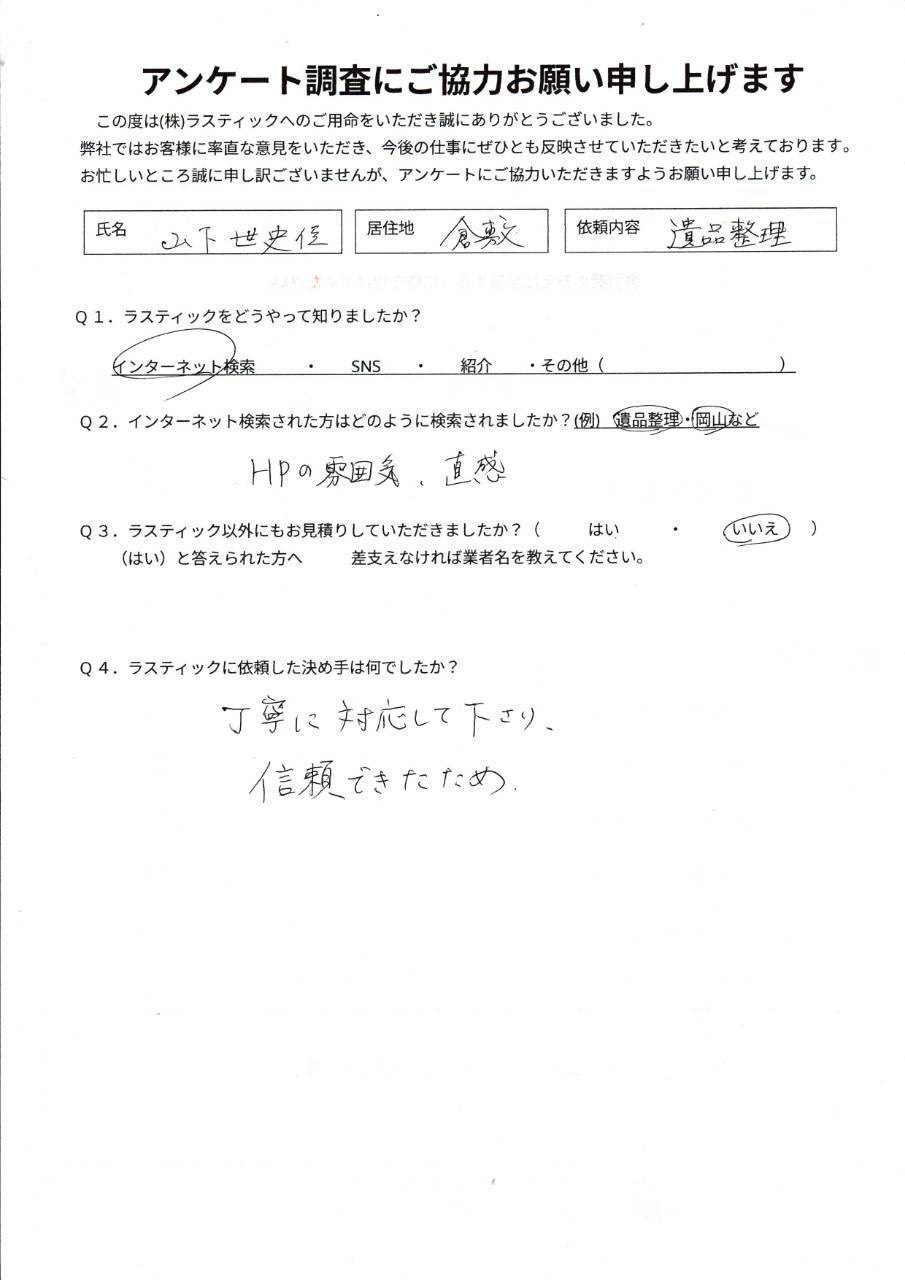 アンケート調査にご協力お願い申し上げます
この度は(株)ラスティックへのご用命をいただき誠にありがとうございました。
弊社ではお客様に率直な意見をいただき、今後の仕事にぜひとも反映させていただきたいと考えております。
お忙しいところ誠に申し訳ございませんが、アンケートにご協力いただきますようお願い申し上げます。
氏名 山下 世史佳 居住地 倉敷 依頼内容 遺品整理
Q1．ラスティックをどうやって知りましたか？
インターネット検索 ・ SNS ・ 紹介 ・その他（ ）
Q2．インターネット検索された方はどのように検索されましたか？(例) 遺品整理・岡山など
HPの雰囲気、直感
Q3．ラスティック以外にもお見積りしていただきましたか？（ はい ・ いいえ ）
（はい）と答えられた方へ 差支えなければ業者名を教えてください。
Q4．ラスティックに依頼した決め手は何でしたか？
丁寧に対応して下さり、
信頼できたため.